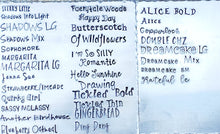 Shadows Into Light
SHADOWS LG
Shadows Mix
SOPHOMORE
MARGARITA
MARGARITA LG
Jenna Sue
Strawberry Limeade
Quirky Girl
SASSY MOLASSY
Another Birdhouse
Fairytale Woods
Happy Day
Butterscotch
Of Wildflowers
I'm So Silly
Romantic
Hello Sunshine
Drawing
Tickled Bold
Tickled Thin
GINGERBREAD
Ding Dong
ALICE BOLD
Alice
Copperlock
DOUBLE CHZ
DREAMCAKE LG
Dreamcake Mix
DREAMCAKE SM
Grateful